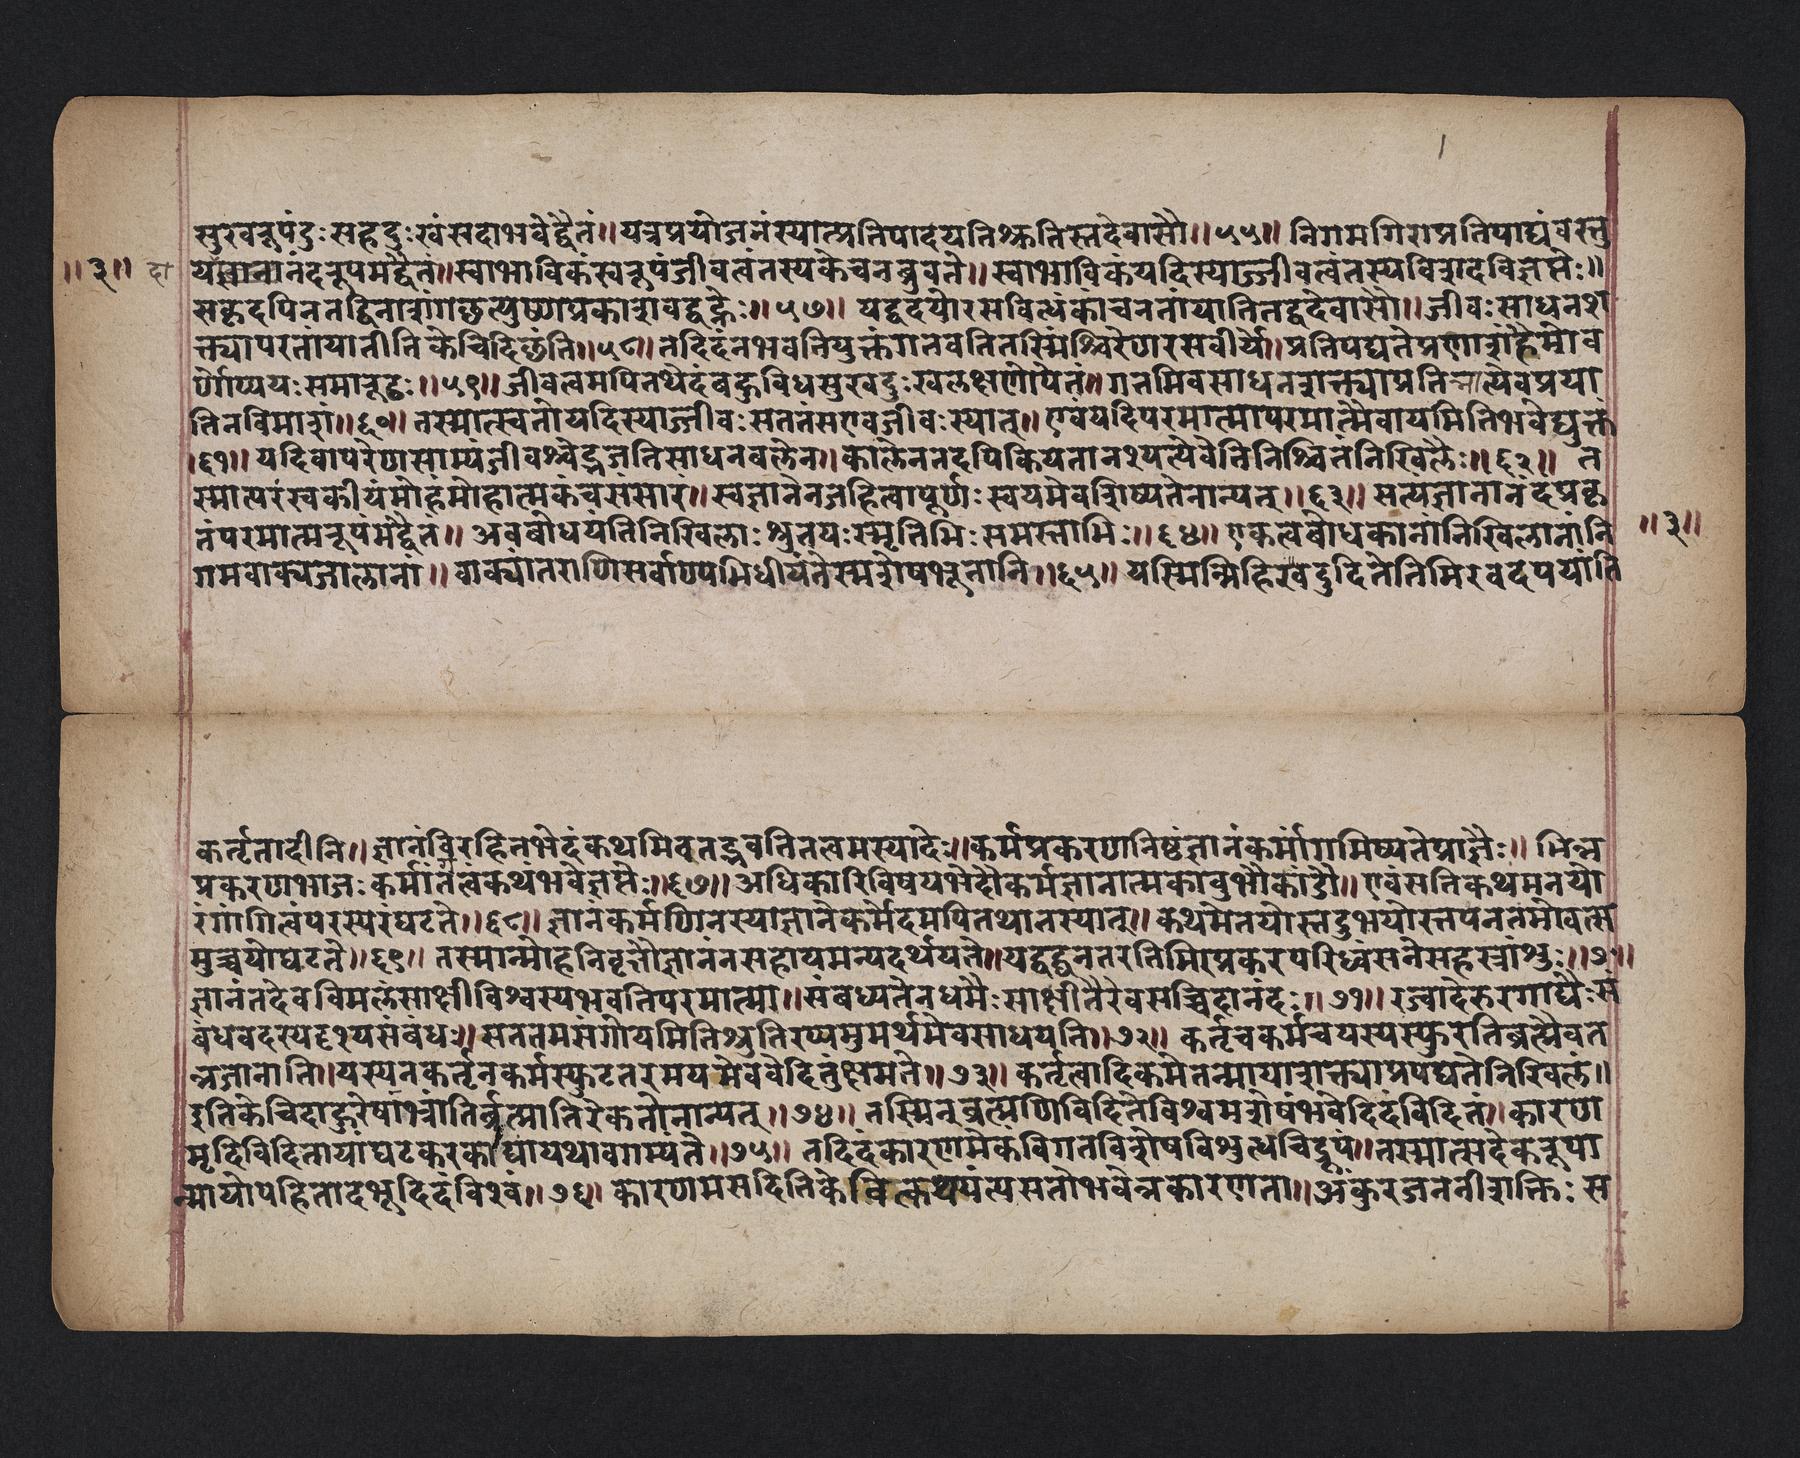 सुखरूपंदुःसहदुःखंसदाभवेद्द्वैतं॥यत्रप्रयोजनंस्यात्प्रतिपादयतिश्रुतिस्तदेवासौ॥५५॥ निगमगिराप्रतिपाद्यंवस्तु
॥३॥ हा यन्नानानंदरूपमद्वैतं॥स्वाभाविकंस्वरूपंजीवत्वंतस्यकेचनब्रुवते॥स्वाभाविकंयदिस्याज्जीवत्वंतस्यविशदविज्ञप्तेः॥
सकृदपिननद्विनाशंगछत्युष्णप्रकाशवद्वह्नेः॥५७॥ यद्वदयोरसविद्धंकांचनतांयातितद्वदेवासौ॥जीवःसाधनश
क्त्यापरतांयातीतिकेचिदिछंति॥५८॥तदिदंनभवतियुक्तंगतवतितस्मिंश्चिरेणरसवीर्ये॥प्रतिपद्यतेप्रणाशंहैमोव
र्णोप्ययःसमारूढः॥५९॥जीवत्वमपितथेदंबहुविधसुखदुःखलक्षणोपेतं॥गतमिवसाधनशक्त्याप्रतिभात्येवप्रया
तिनविनाशं॥६०॥तस्मात्स्वतोयदिस्याज्जीवःसततंसएवजीवःस्यात्॥एवंयदिपरमात्मापरमात्मैवायमितिभवेद्युक्तं
।६१॥यदिवापरेणसाम्यंजीवश्चेद्भजतिसाधनबलेन॥कालेनतदपिकियतानश्यत्येवेतिनिश्चितंनिखिलैः॥६२॥ त
स्मात्परंस्वकीयंमोहंमोहात्मकंचसंसारं॥स्वज्ञानेनजहित्वापूर्णःस्वयमेवशिष्यतेनान्यत्॥६३॥ सत्यज्ञानानंदप्रकृ
तंपरमात्मरूपमद्वैतं॥ अवबोधयंतिनिखिलाःश्रुतयःस्मृतिभिःसमस्ताभिः॥६४॥ एकत्वबोधकानांनिखिलानांनि ॥३॥
गमवाक्यजालानां॥वाक्यांतराणिसर्वाण्यपभिधीयंतेस्मशेषभूतानि॥६५॥ यस्मिन्मिहिरवदुदितेतिमिरवदपयांति
कर्तृतादीनि॥ज्ञानंविरहितभेदंकथमिवतद्भवतितत्वमस्यादेः॥कर्मप्रकरणनिष्ठंज्ञानंकर्मांगमिष्यतेप्राज्ञैः॥ भिन्न
प्रकरणभाजःकर्मांतेत्वंकथंभवेज्ञप्तेः॥६७॥अधिकारिविषयभेदौकर्मज्ञानात्मकावुभौकांडौ॥एवंसतिकथमनयो
रंगांगित्वंपरस्परंघटते॥६८॥ज्ञानंकर्मणिनस्याज्ञानेकर्मेदमपितथानस्यात्॥कथमेतयोस्तदुभयोस्तपनतमोवत्स
मुच्चयोघटते॥६९॥तस्मान्मोहनिवृत्तौज्ञानंनसहायमन्यदर्थयते॥यद्वद्घनतरतिमिरप्रकरपरिध्वंसनेसहस्रांशुः॥७०॥
ज्ञानंतदेवविमलंसाक्षीविश्वस्यभवतिपरमात्मा॥संबध्यतेनधर्मैःसाक्षीतैरेवसच्चिदानंदः॥७१॥रज्वादेरुरगाद्यैःसं
बंधवदस्यदृश्यसंबंधः॥सततमसंगोयमितिश्रुतिरप्यमुमर्थमेवसाधयति॥७२॥ कर्तृचकर्मचयस्यस्फुरतिब्रह्मैवत
न्नजानाति॥यस्यनकर्तृनकर्मस्फुटतरमयमेववेदितुंक्षमते॥७३॥ कर्तृत्वादिकमेतन्मायाशक्त्याप्रपद्यतेनिखिलं॥
इतिकेचिदाहुरेषाभ्रांतिर्ब्रह्मातिरेकतोनान्यत्॥७४॥ तस्मिन्ब्रह्मणिविदितेविश्वमशेषंभवेदिदंविदितं॥कारण
मृदिविदितायांघटकरकाद्यायथावगम्यंते॥७५॥ तदिदंकारणमेकंविगतविशेषंविशुद्धचिद्रूपं॥तस्मात्सदेकरूपा
न्मायोपहितादभूदिदंविश्वं॥७६॥ कारणमसदितिकेचित्कथयंत्यसतोभवेन्नकारणता॥अंकुरजननीशक्तिः स